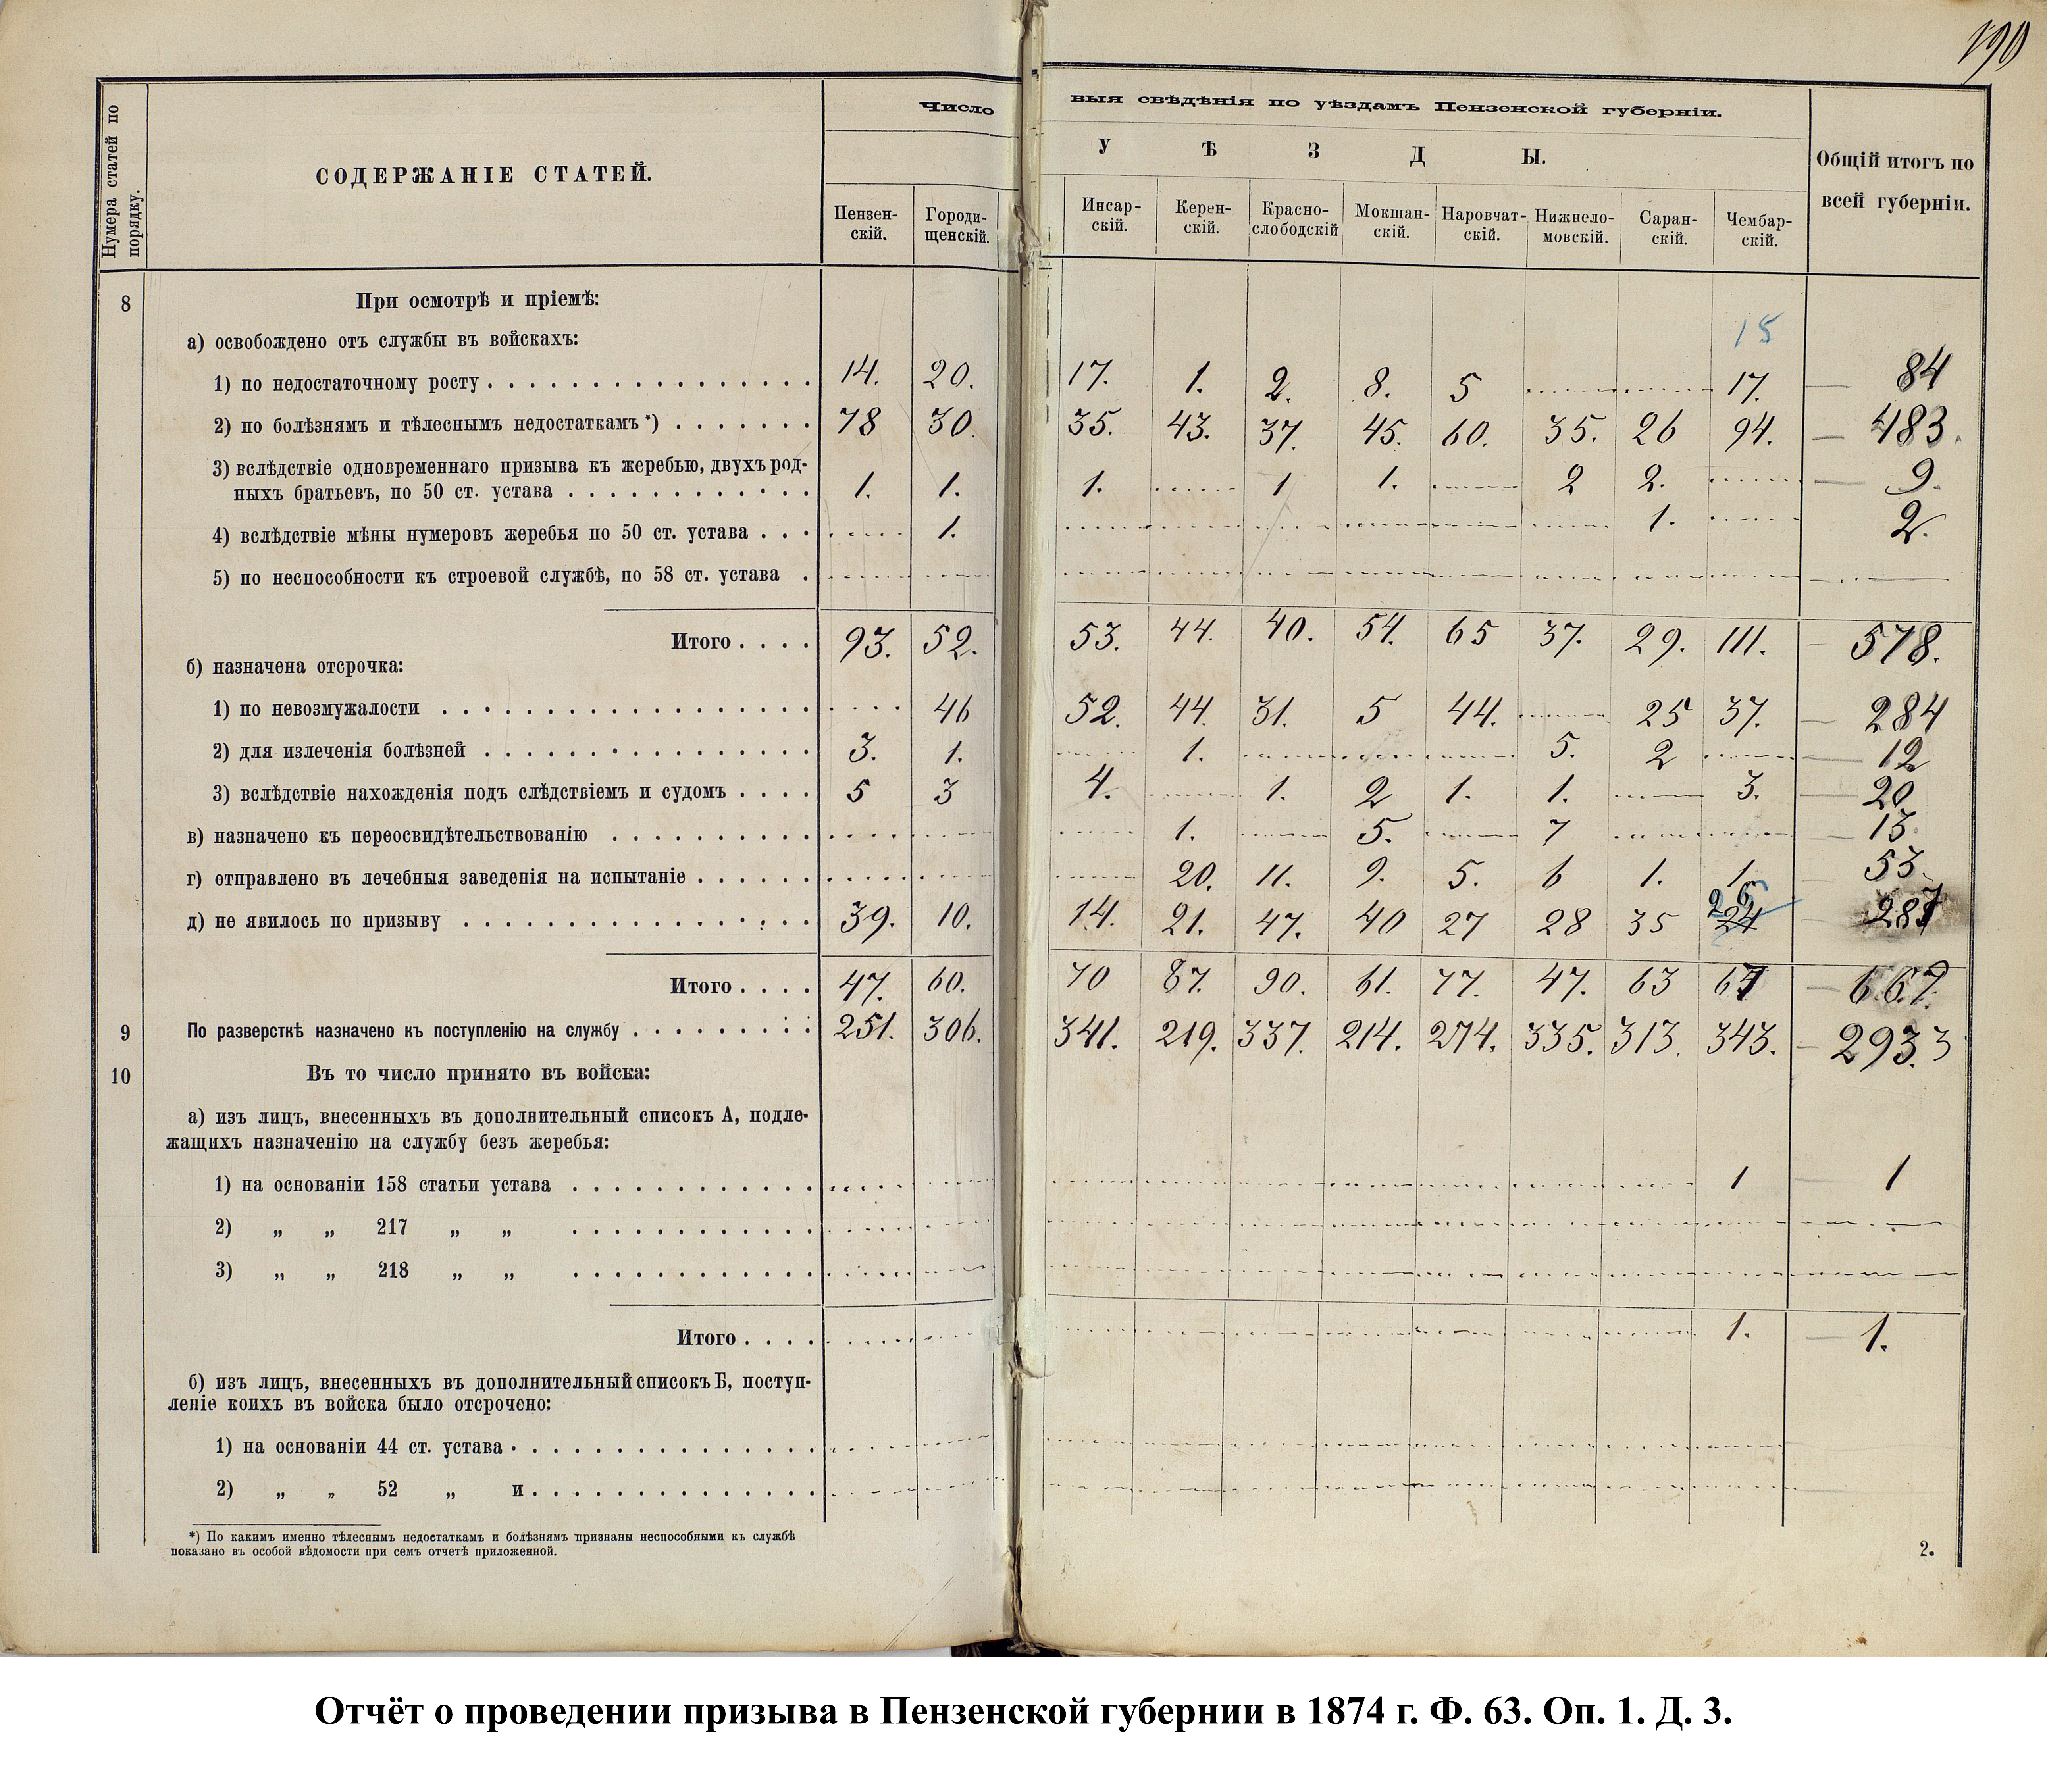 190
Нумера статей по порядку.
СОДЕРЖАНІЕ СТАТЕЙ.
Число
выя свѣдѣнія по уѣздамъ Пензенской губерніи.
У Ѣ З Д Ы.
Общій итогъ по всей губерніи.
Пензен-скій. Городи-щенскій. Инсар-скій. Керен-скій. Красно-слободскій Мокшан-скій. Наровчат-скій. Нижнело-мовскій. Саран-скій. Чембар-скій.
8 При осмотрѣ и пріемѣ:
15
а) освобождено отъ службы въ войскахъ:
1) по недостаточному росту 14. 20. 17. 1. 2. 8. 5 17. 84
2) по болѣзнямъ и тѣлеснымъ недостаткамъ *) 78 30. 35. 43. 37. 45. 60. 35. 26 94. 483.
3) вслѣдствіе одновременнаго призыва къ жеребью, двухъ род-
ныхъ братьевъ, по 50 ст. устава 1. 1. 1. 1 1. 2 2. 9.
4) вслѣдствіе мѣны нумеровъ жеребья по 50 ст. устава 1. 1. 2.
5) по неспособности къ строевой службѣ, по 58 ст. устава
Итого 93. 52. 53. 44. 40. 54. 65 37. 29. 111. 578.
б) назначена отсрочка:
1) по невозмужалости 46 52. 44. 31. 5 44. 25 37. 284
2) для излеченія болѣзней 3. 1. 1. 5. 2 12
3) вслѣдствіе нахожденія подъ слѣдствіемъ и судомъ 5 3 4. 1. 2 1. 1. 3. 20
в) назначено къ переосвидѣтельствованію 1. 5. 7 13
г) отправлено въ лечебныя заведенія на испытаніе 20. 11. 9. 5. 6 1. 1. 53.
26
д) не явилось по призыву 39. 10. 14. 21. 47. 40 27 28 35 24 287
Итого 47. 60. 70 87. 90. 61. 77. 47. 63 67 667.
9 По разверсткѣ назначено къ поступленію на службу 251. 306. 341. 219. 337. 214. 274. 335. 313. 343. 2933
10 Въ то число принято въ войска:
а) изъ лицъ, внесенныхъ въ дополнительный списокъ А, подле-
жащихъ назначенію на службу безъ жеребья:
1) на основаніи 158 статьи устава 1 1
2) „ „ 217 „ „
3) „ „ 218 „ „
Итого 1. 1.
б) изъ лицъ, внесенныхъ въ дополнительный списокъ Б, поступ-
леніе коихъ въ войска было отсрочено:
1) на основаніи 44 ст. устава
2) „ „ 52 „ и
*) По какимъ именно тѣлеснымъ недостаткамъ и болѣзнямъ признаны неспособными къ службѣ
показано въ особой вѣдомости при семъ отчетѣ приложенной.
2.
Отчёт о проведении призыва в Пензенской губернии в 1874 г. Ф. 63. Оп. 1. Д. 3.